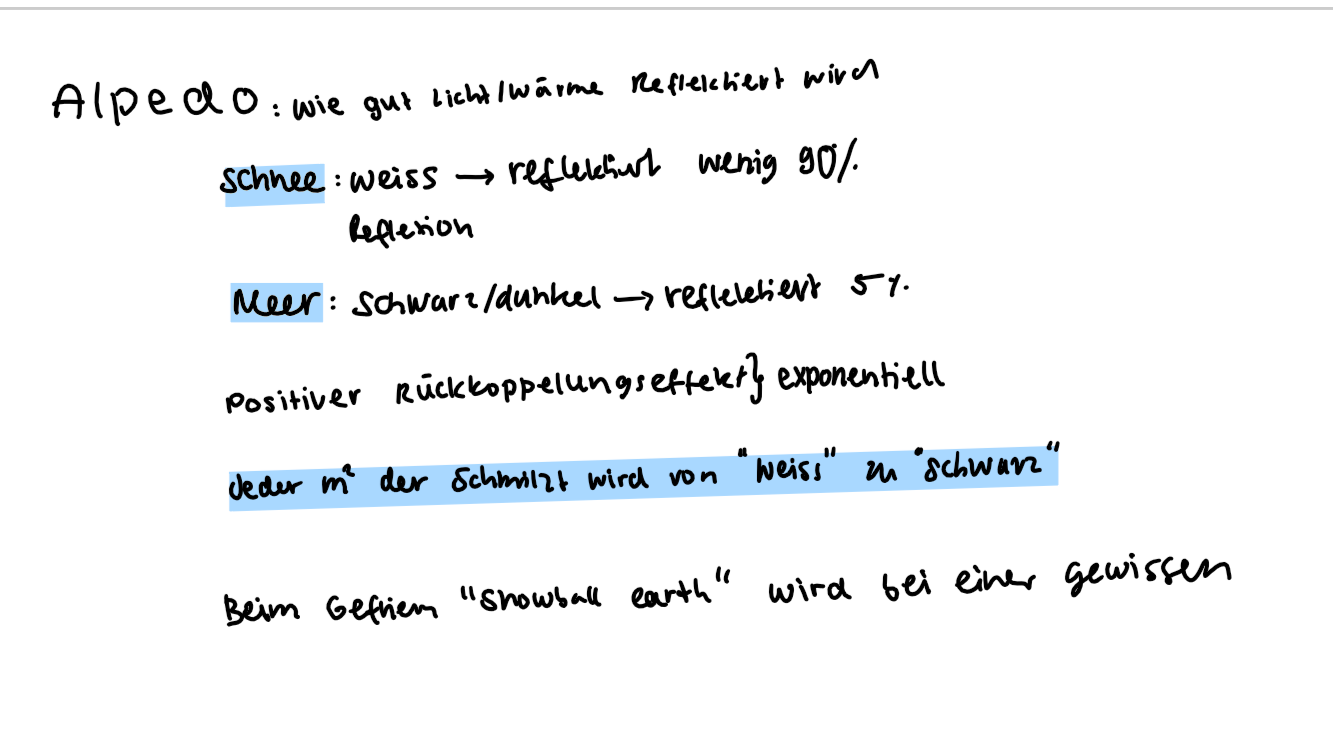 Alpedo: wie gut Licht/Wärme Reflektiert wird
Schnee: weiss → reflektiert wenig 90%
Reflexion
Meer: Schwarz/dunkel → reflektiert 5%
Positiver Rückkoppelungseffekt} exponentiell
Jeder m² der Schmilzt wird von "weiss" zu "schwarz"
Beim Gefrieren "snowball earth" wird bei einer gewissen